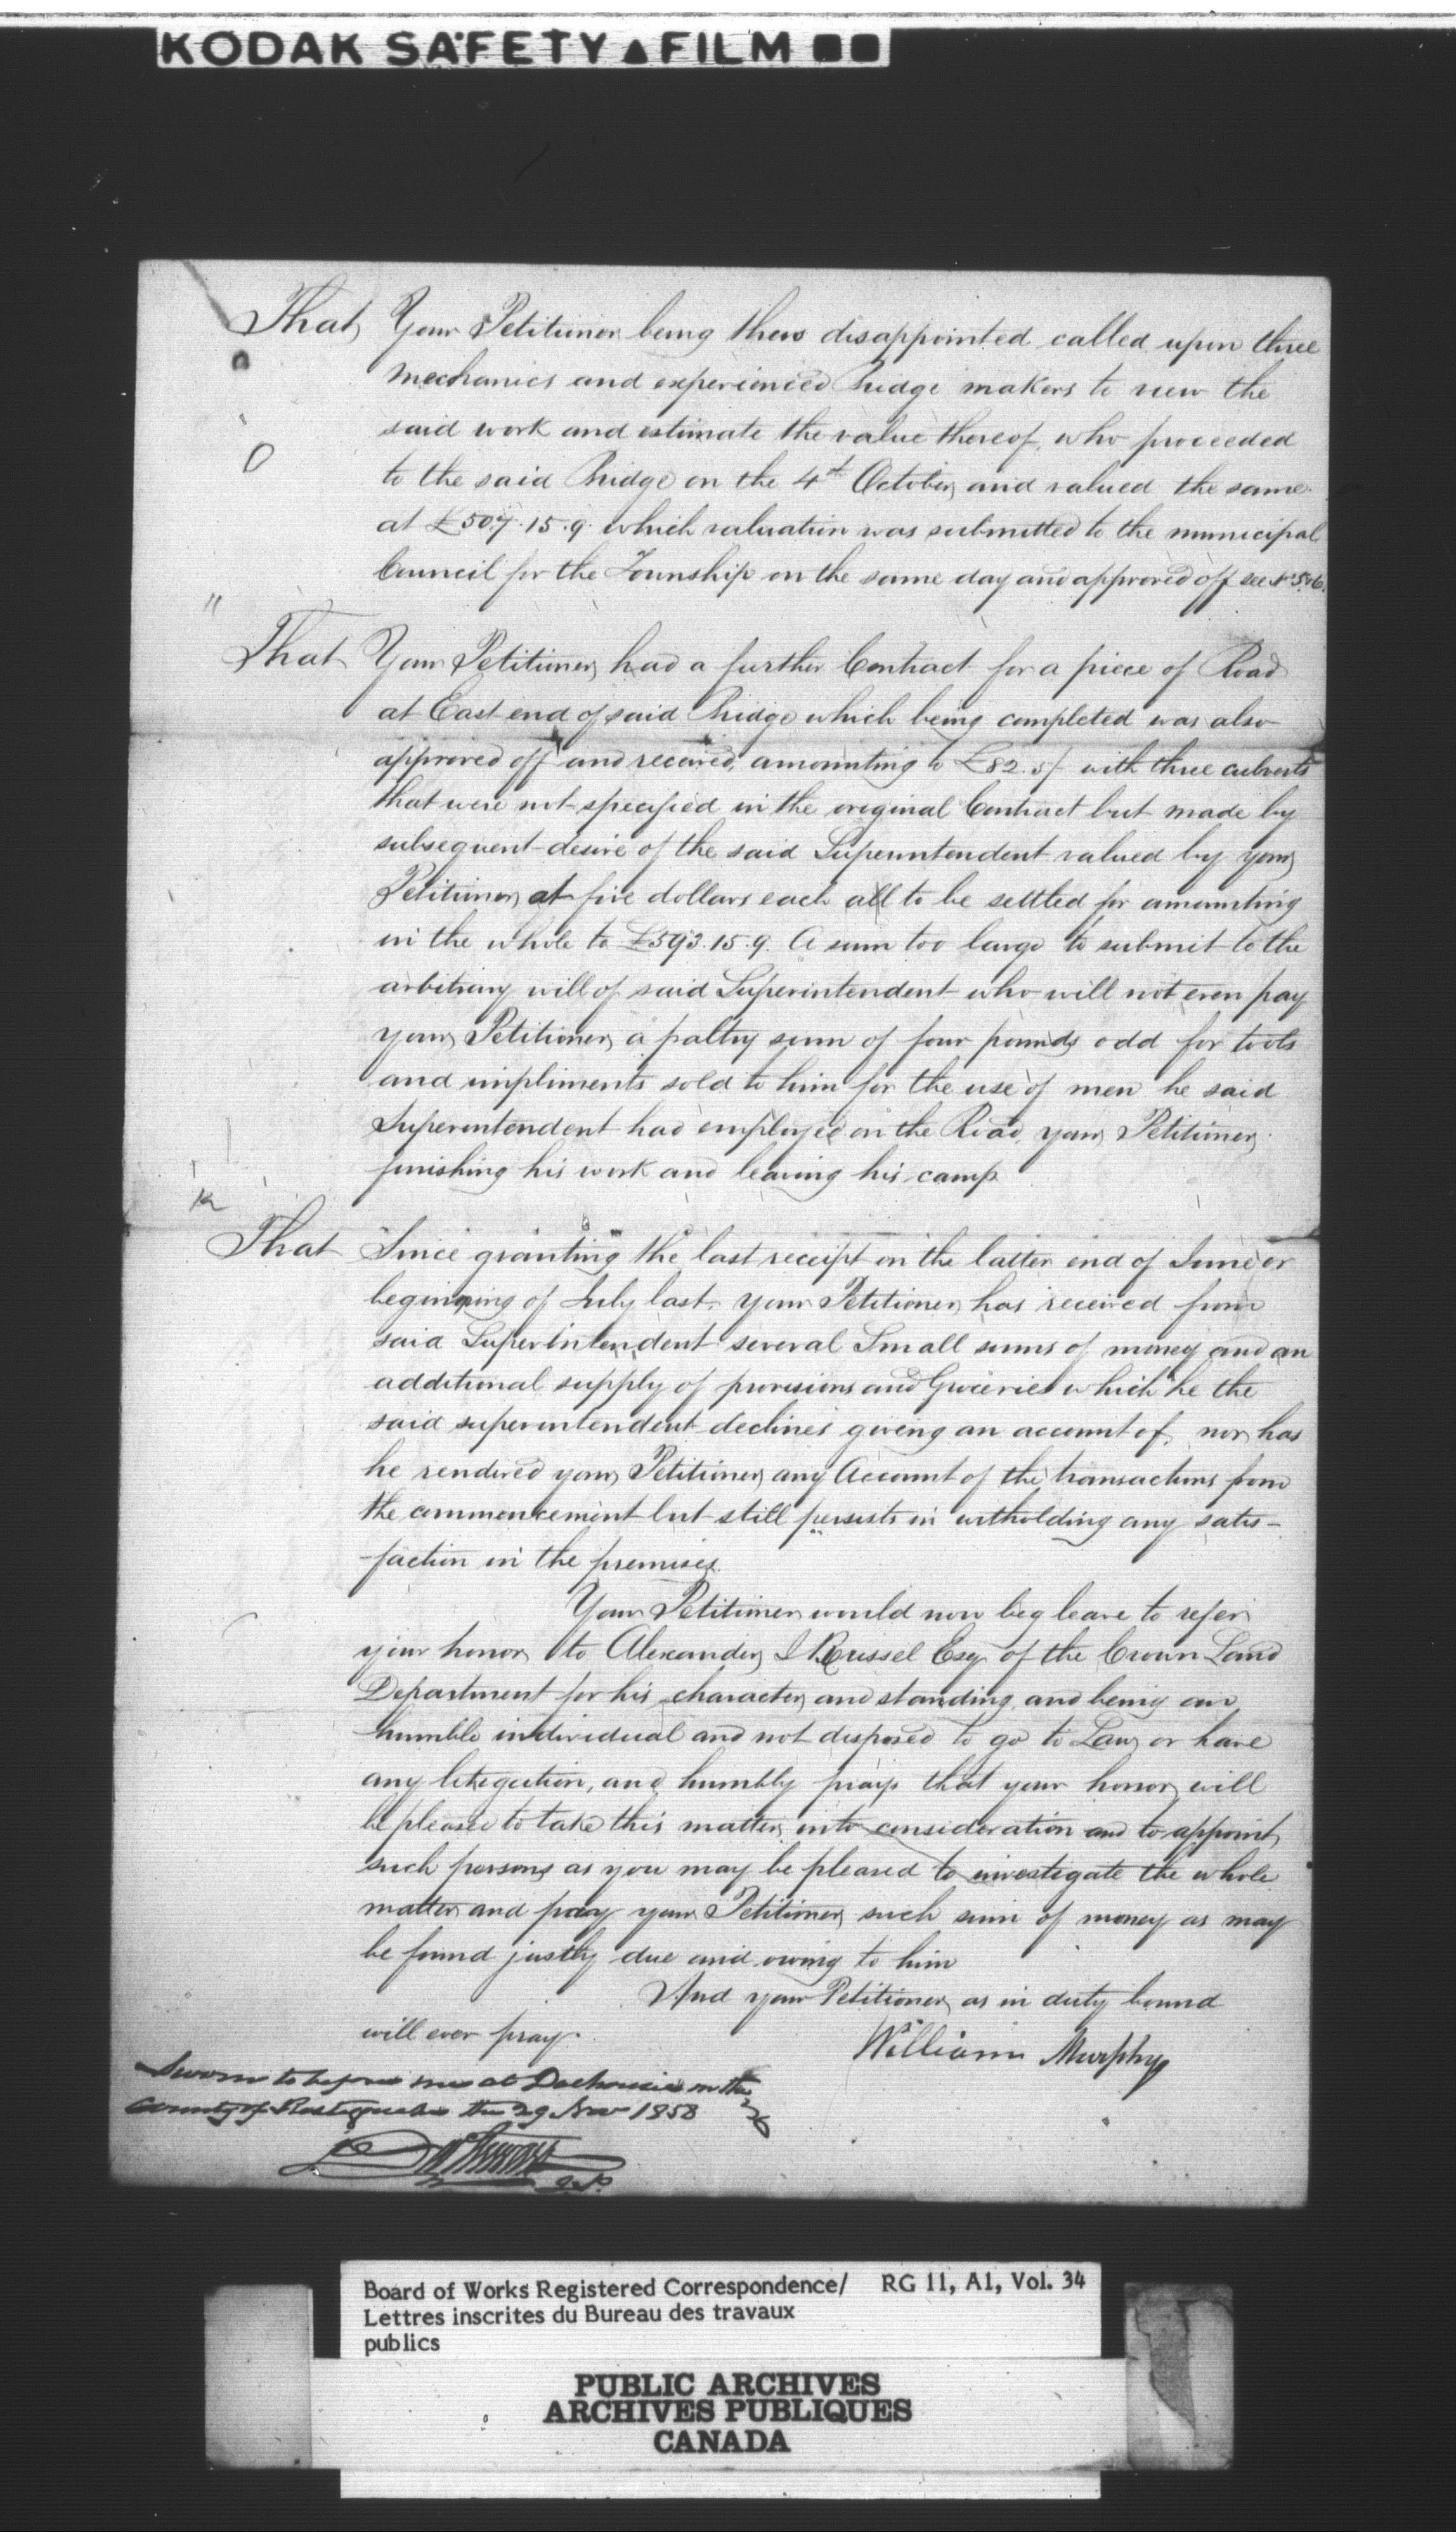 KODAK SAFETY ▲ FILM ■■
That Your Petitioner being thus disappointed called upon three
mechanics and experienced Bridge makers to view the
said work and estimate the value thereof, who proceeded
to the said Bridge on the 4th October, and valued the same
at £507.15.9 which valuation was submitted to the municipal
Council for the Township on the same day and approved off see No 5 & 6.
"
That Your Petitioner had a further Contract for a piece of Road
at East end of said Bridge which being completed was also
approved off and received, amounting to £82.5/- with three culverts
that were not specified in the original Contract but made by
subsequent desire of the said Superintendent valued by your
Petitioner at five dollars each all to be settled for amounting
in the whole to £593.15.9. A sum too large to submit to the
arbitrary will of said Superintendent who will not even pay
your Petitioner a paltry sum of four pounds odd for tools
and impliments sold to him for the use of men he said
Superintendent had employed on the Road, your Petitioner
finishing his work and leaving his camp
That Since granting the last receipt on the latter end of June or
begining of July last, your Petitioner has received from
said Superintendent several Small sums of money and an
additional supply of provisions and Groceries which he the
said superintendent declines giving an account of, nor has
he rendered your Petitioner any Account of the transactions from
the commencement but still persists in witholding any satis-
-faction in the premises.
Your Petitioner would now beg leave to refer
your honor to Alexander J Russel Esqr of the Crown Land
Department for his character and standing, and being an
humble individual and not disposed to go to Law or have
any litegation, and humbly prays that your honor will
be pleased to take this matter into consideration and to appoint
such persons as you may be pleased to investigate the whole
matter and pay your Petitioner such sum of money as may
be found justly due and owing to him
And your Petitioner as in duty bound
will ever pray.
William Murphy
Sworn to before me at Dalhousie in the
County of Restigouche the 29 Nov 1858
J.P.
Board of Works Registered Correspondence/ RG 11, A1, Vol. 34
Lettres inscrites du Bureau des travaux
publics
PUBLIC ARCHIVES
ARCHIVES PUBLIQUES
CANADA